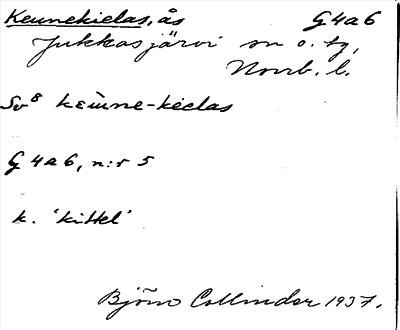 Keunekielas, ås G4a6
Jukkasjärvi sn o. tg,
Norrb. l.
Sv⁸ keùne-kielas
G 4a6, n:r 5
k. 'kittel'
Björn Collinder 1937.